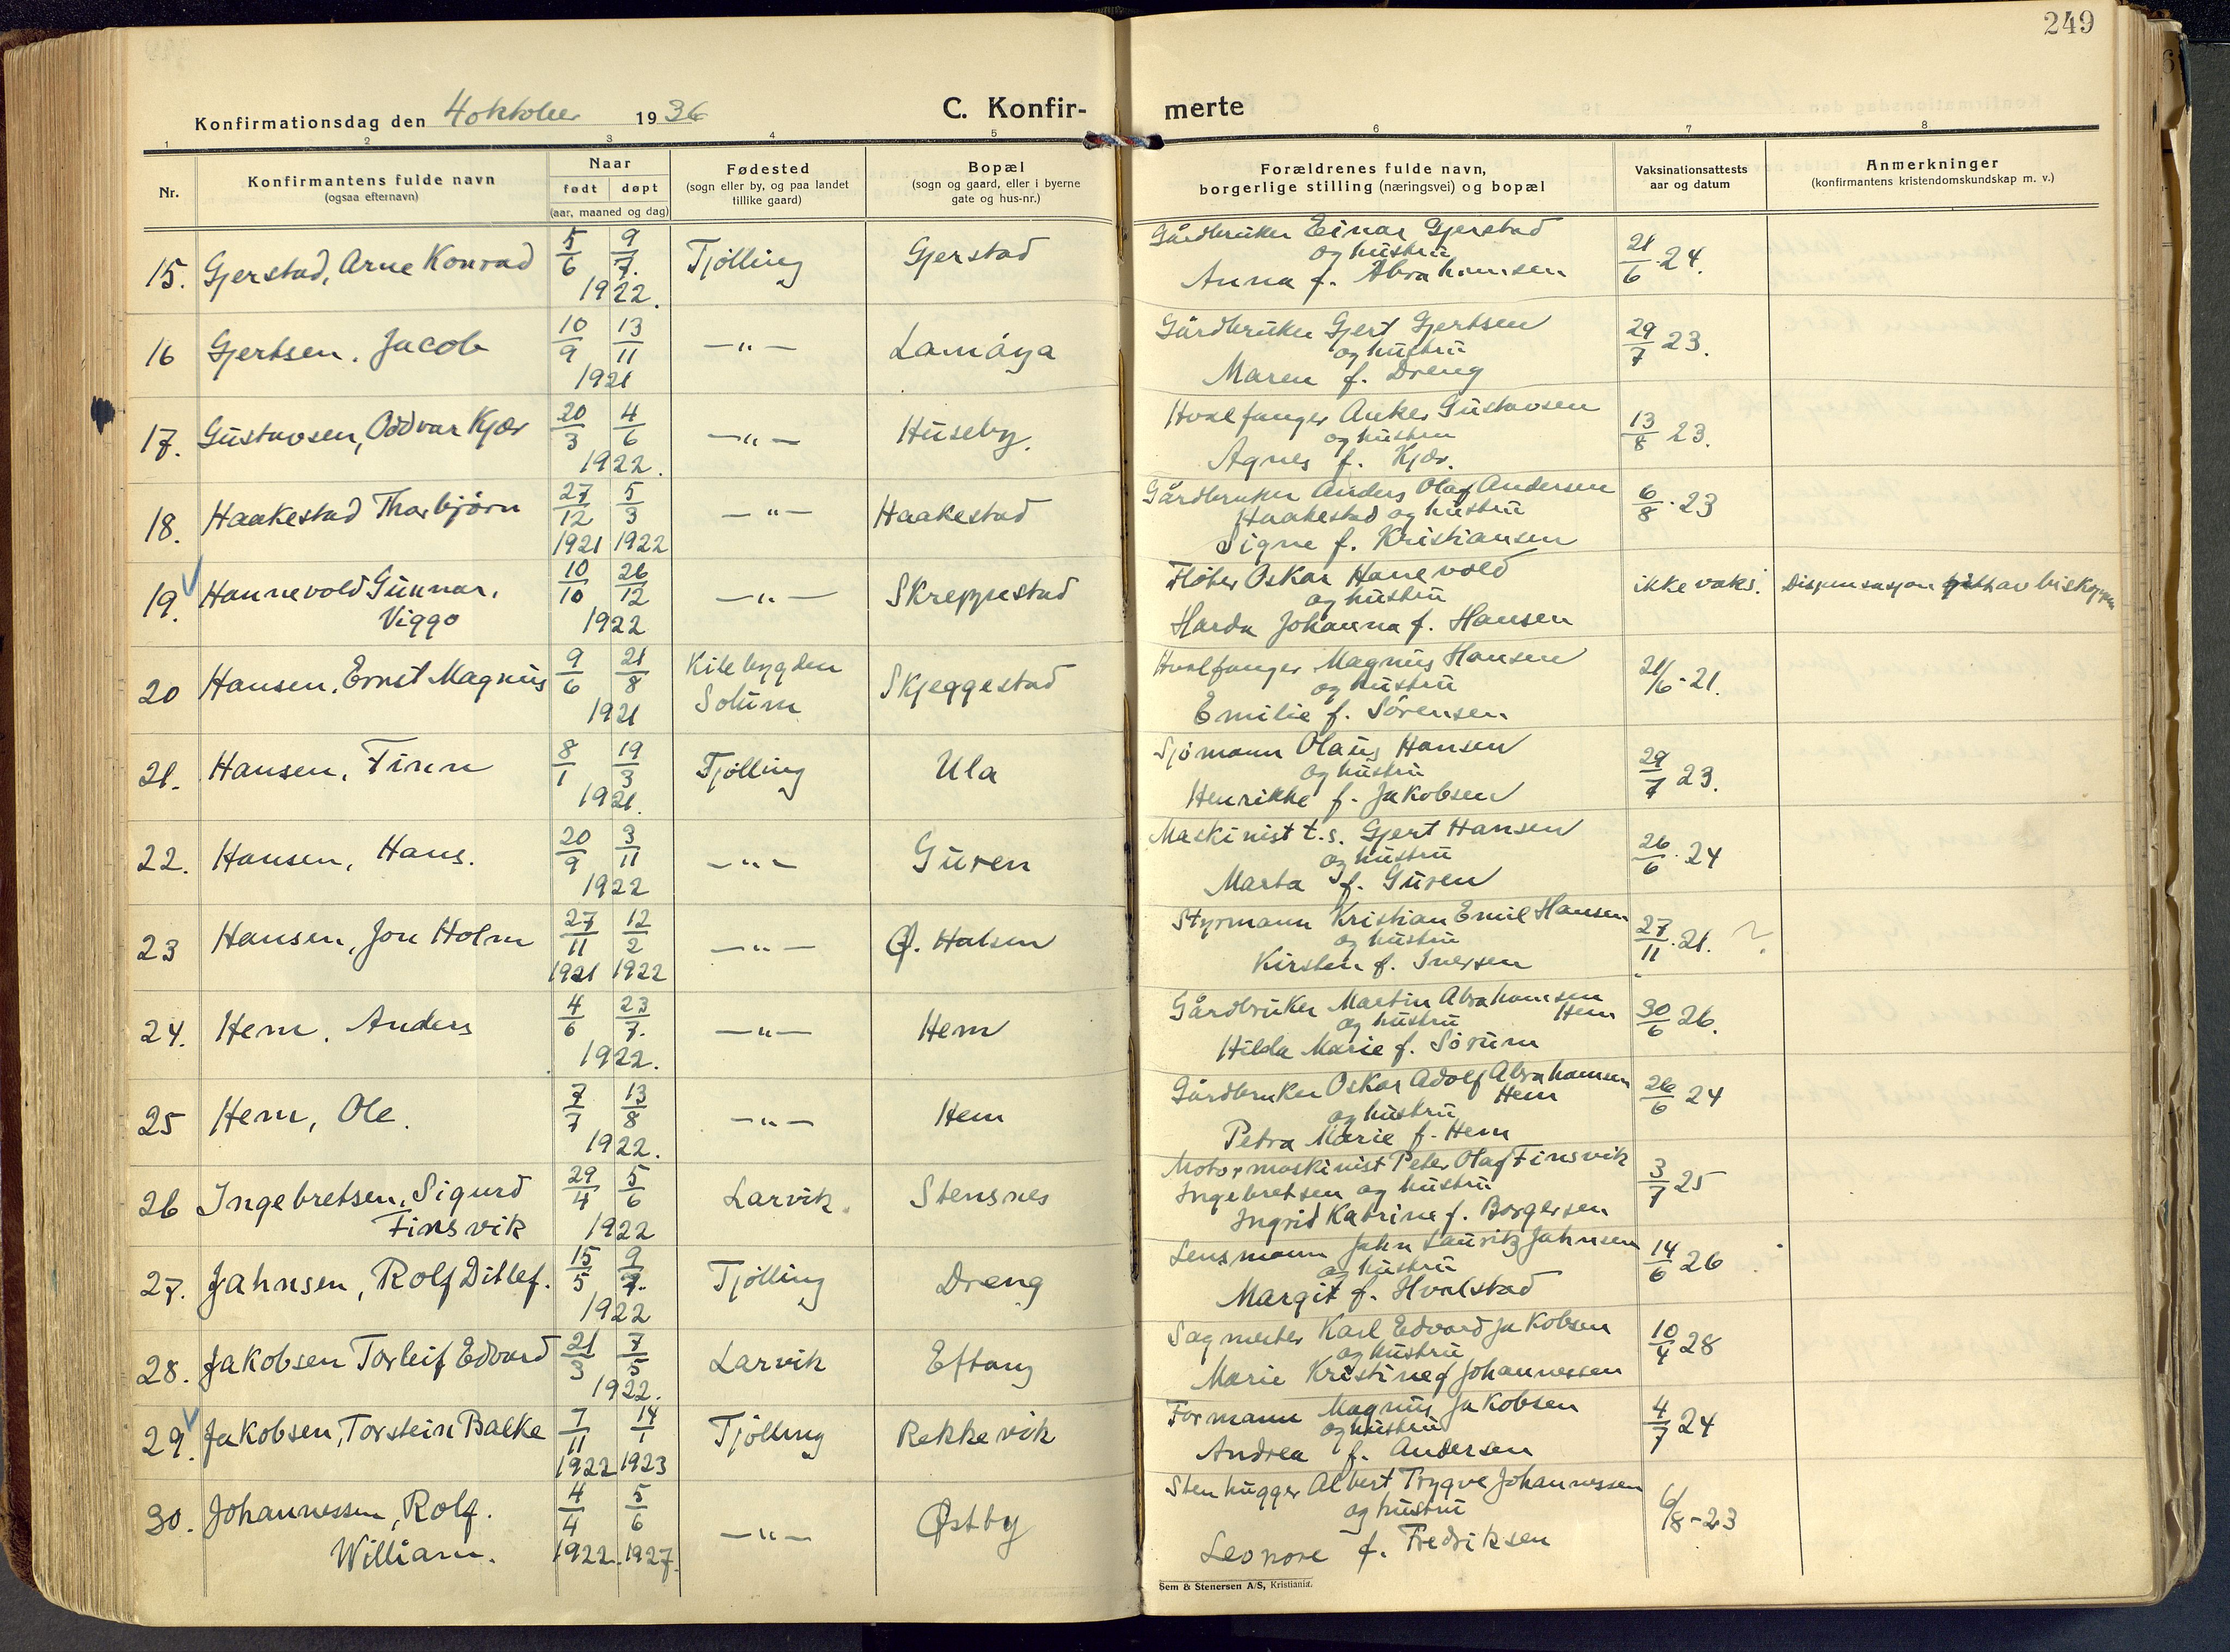 249
Konfirmationsdag den 4 oktober 1936
C. Konfir-
merte
1 2 3 4 5 6 7 8
Nr.
Konfirmantens fulde navn
(ogsaa efternavn)
Naar
født døpt
(aar, maaned og dag)
Fødested
(sogn eller by, og paa landet
tillike gaard)
Bopæl
(sogn og gaard, eller i byerne
gate og hus-nr.)
Forældrenes fulde navn,
borgerlige stilling (næringsvei) og bopæl
Vaksinationsattests
aar og datum
Anmerkninger
(konfirmantens kristendomskundskap m. v.)
15. Gjerstad, Arne Konrad 5/6 9/7. 1922. Tjølling Gjerstad
Gårdbruker Einar Gjerstad
og hustru
Anna f. Abrahamsen
21/6.24.
16 Gjertsen. Jacob 10/9 13/11 1921 —"— Lamøya
Gårdbruker Gjert Gjertsen
og hustru
Maren f. Dreng
29/7 23.
17. Gustavsen, Oddvar Kjær 20/3 4/6 1922. —"— Huseby.
Hvalfanger Anker Gustavsen
og hustru
Agnes f. Kjær.
13/8 23.
18. Haakestad Thorbjørn 27/12 1921 5/3 1922 —"— Haakestad
Gårdbruker Anders Olaf Andersen
Haakestad og hustru
Signe f. Kristiansen
6/8.23
19. Hannevold Gunnar.
Viggo
10/10 26/12 1922 —"— Skreppestad
Fløter Oskar Hanevold
og hustru
Harda Johanna f. Hansen
ikke vaks. Dispensasjon av biskopen
20 Hansen, Ernst Magnus 9/6 21/8 1921
Kilebygden
Solum
Skjeggestad
Hvalfanger Magnus Hansen
og hustru
Emilie f. Sørensen
21/6-21.
21. Hansen, Finn 8/1 19/3 1921. Tjølling Ula
Sjømann Olaus Hansen
og hustru
Henrikke f. Jakobsen
29/7 23.
22. Hansen, Hans. 20/9 3/11 1922 —"— Guren
Maskinist t.s. Gjert Hansen
og hustru
Marta f. Guren
26/6.24
23 Hansen, Jon Holm 27/11 1921 12/2 1922 —"— Ø. Halsen
Styrmann Kristian Emil Hansen
og hustru
Kirsten f. Iversen
27/11.21. ?
24. Hem, Anders 4/6 23/7. 1922. —"— Hem
Gårdbruker Martin Abrahamsen
Hem
og hustru
Hilda Marie f. Sørum
30/6 26.
25 Hem, Ole. 7/7 13/8 1922. —"— Hem
Gårdbruker Oskar Adolf Abrahamsen
Hem
og hustru
Petra Marie f. Hem
26/6 24
26 Ingebretsen, Sigurd
Finsvik
29/4 5/6 1922 Larvik. Stensnes
Motormaskinist Peter Olaf Finsvik
Ingebretsen og hustru
Ingrid Katrine f. Borgersen
3/7 25
27. Jahnsen, Rolf Ditlef. 15/5 9/7. 1922 Tjølling Dreng
Lensmann Jahn Lauritz Jahnsen
og hustru
Margit f. Hvalstad
14/6 26
28. Jakobsen Torleif Edvard 21/3 7/5 1922. Larvik Eftang
Sagmester Karl Edvard Jakobsen
og hustru
Marie Kristine f Johannessen
10/4 28
29. Jakobsen, Torstein Balke 7/11 1922 14/1 1923 Tjølling Rekkevik
Formann Magnus Jakobsen
og hustru
Andrea f. Andersen
4/7 24
30. Johannessen, Rolf.
William.
4/4 1922. 5/6 1927. —"— Østby
Stenhugger Albert Trygve Johannessen
og hustru
Leonore f. Fredriksen
6/8-23
Sem & Stenersen A/S, Kristiania.